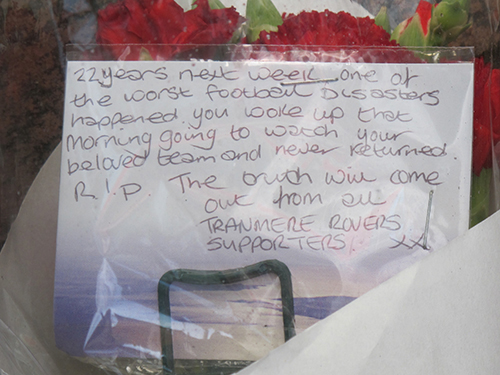 22 years next week one of
the worst football Disasters
happened you woke up that
morning going to watch your
beloved team and never returned.
R.I.P. The truth will come
out from all
TRANMERE ROVERS
SUPPORTERS. XX